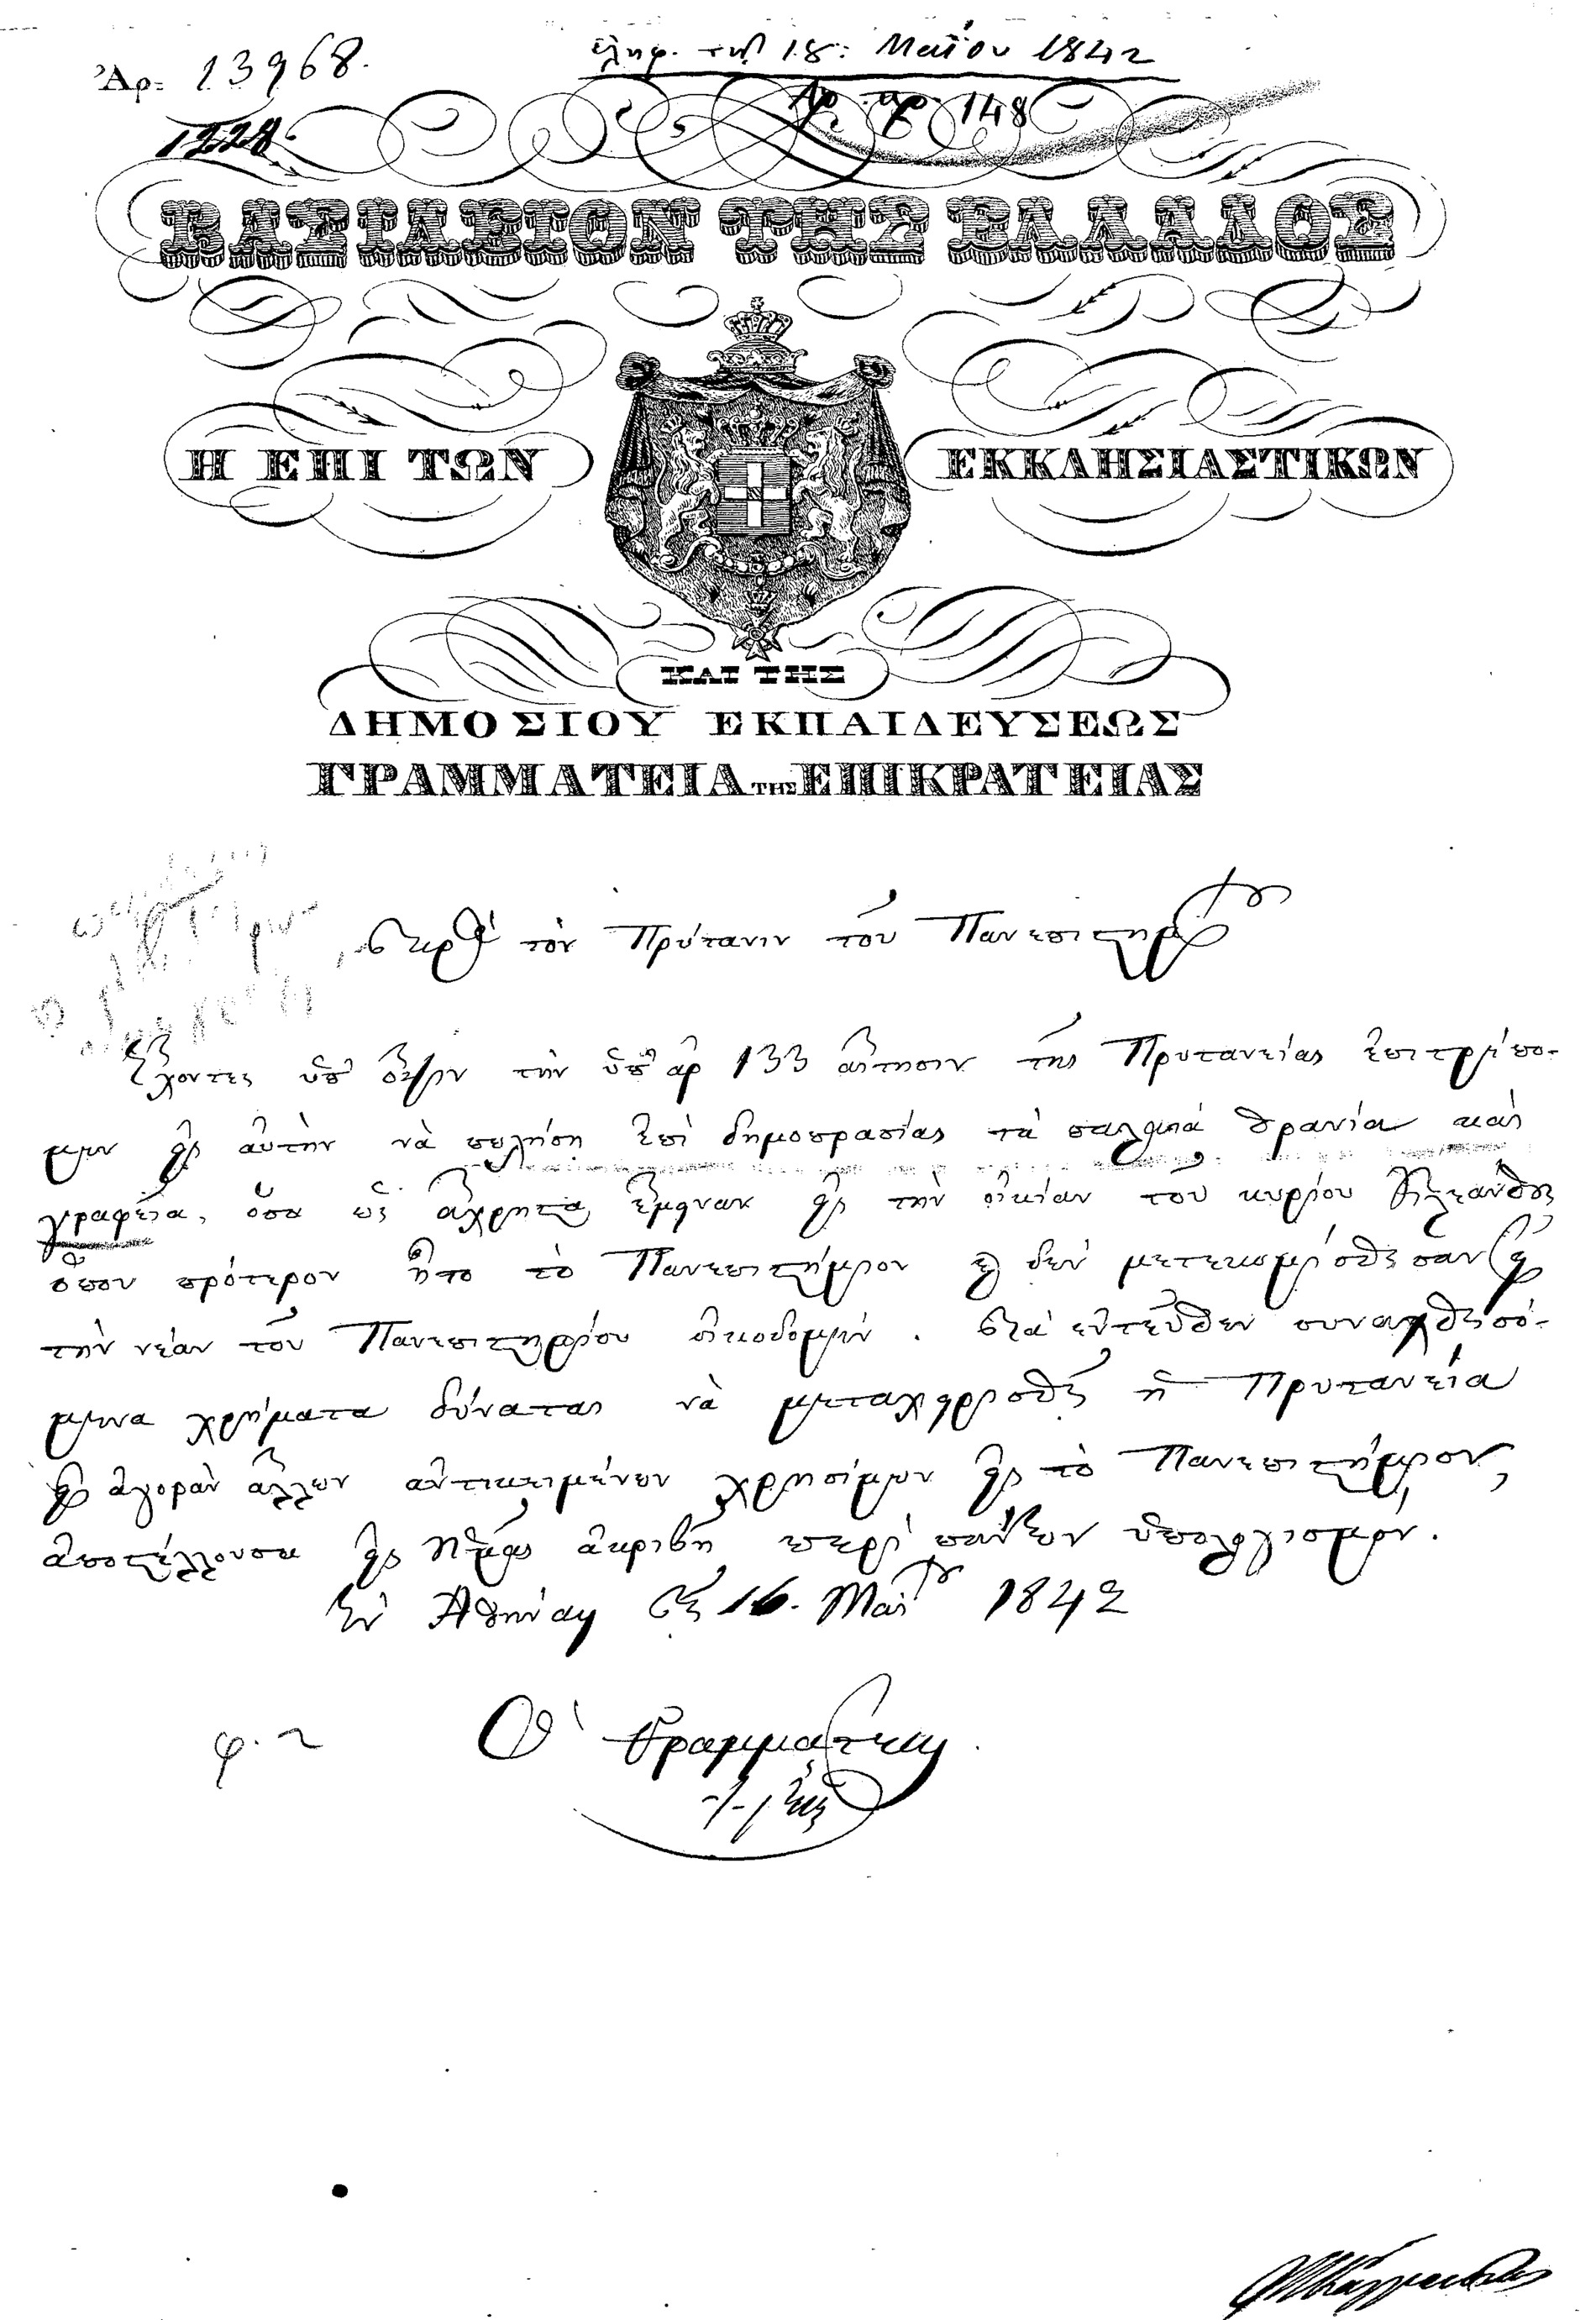 Ἀρ: 13968.
ἐλήφ. τῇ 18: Μαΐου 1842
Ἀρ. πρ. 148
1228
ΒΑΣΙΛΕΙΟΝ ΤΗΣ ΕΛΛΑΔΟΣ
Η ΕΠΙ ΤΩΝ ΕΚΚΛΗΣΙΑΣΤΙΚΩΝ
ΚΑΙ ΤΗΣ
ΔΗΜΟΣΙΟΥ ΕΚΠΑΙΔΕΥΣΕΩΣ
ΓΡΑΜΜΑΤΕΙΑ ΤΗΣ ΕΠΙΚΡΑΤΕΙΑΣ
τὸν Πρύτανιν τοῦ Πανεπιστημίου
Ἔχοντες ὑπ' ὄψιν τὴν ὑπ' ἀρ 133 αἴτησιν τῆς Πρυτανείας ἐπιτρέπο-
μεν εἰς αὐτὴν νὰ πωλήσῃ ἐπὶ δημοπρασίας τὰ παλαιὰ θρανία καὶ
γραφεῖα, ὅσα ὡς ἄχρηστα ἔμειναν εἰς τὴν οἰκίαν τοῦ κυρίου Κλεάνθους
ὅπου πρότερον ἦτο τὸ Πανεπιστήμιον καὶ δὲν μετεκομίσθησαν εἰς
τὴν νέαν τοῦ Πανεπιστημίου οἰκοδομήν. Τὰ ἐντεῦθεν συναχθησό-
μενα χρήματα δύναται νὰ μεταχειρισθῇ ἡ Πρυτανεία
εἰς ἀγορὰν ἄλλων ἀντικειμένων χρησίμων εἰς τὸ Πανεπιστήμιον,
ἀποστέλλουσα εἰς ἡμᾶς ἀκριβῆ περὶ πάντων ὑπολογισμόν.
Ἐν Ἀθήναις τῇ 16. Μαΐου 1842
Ὁ Γραμματεὺς